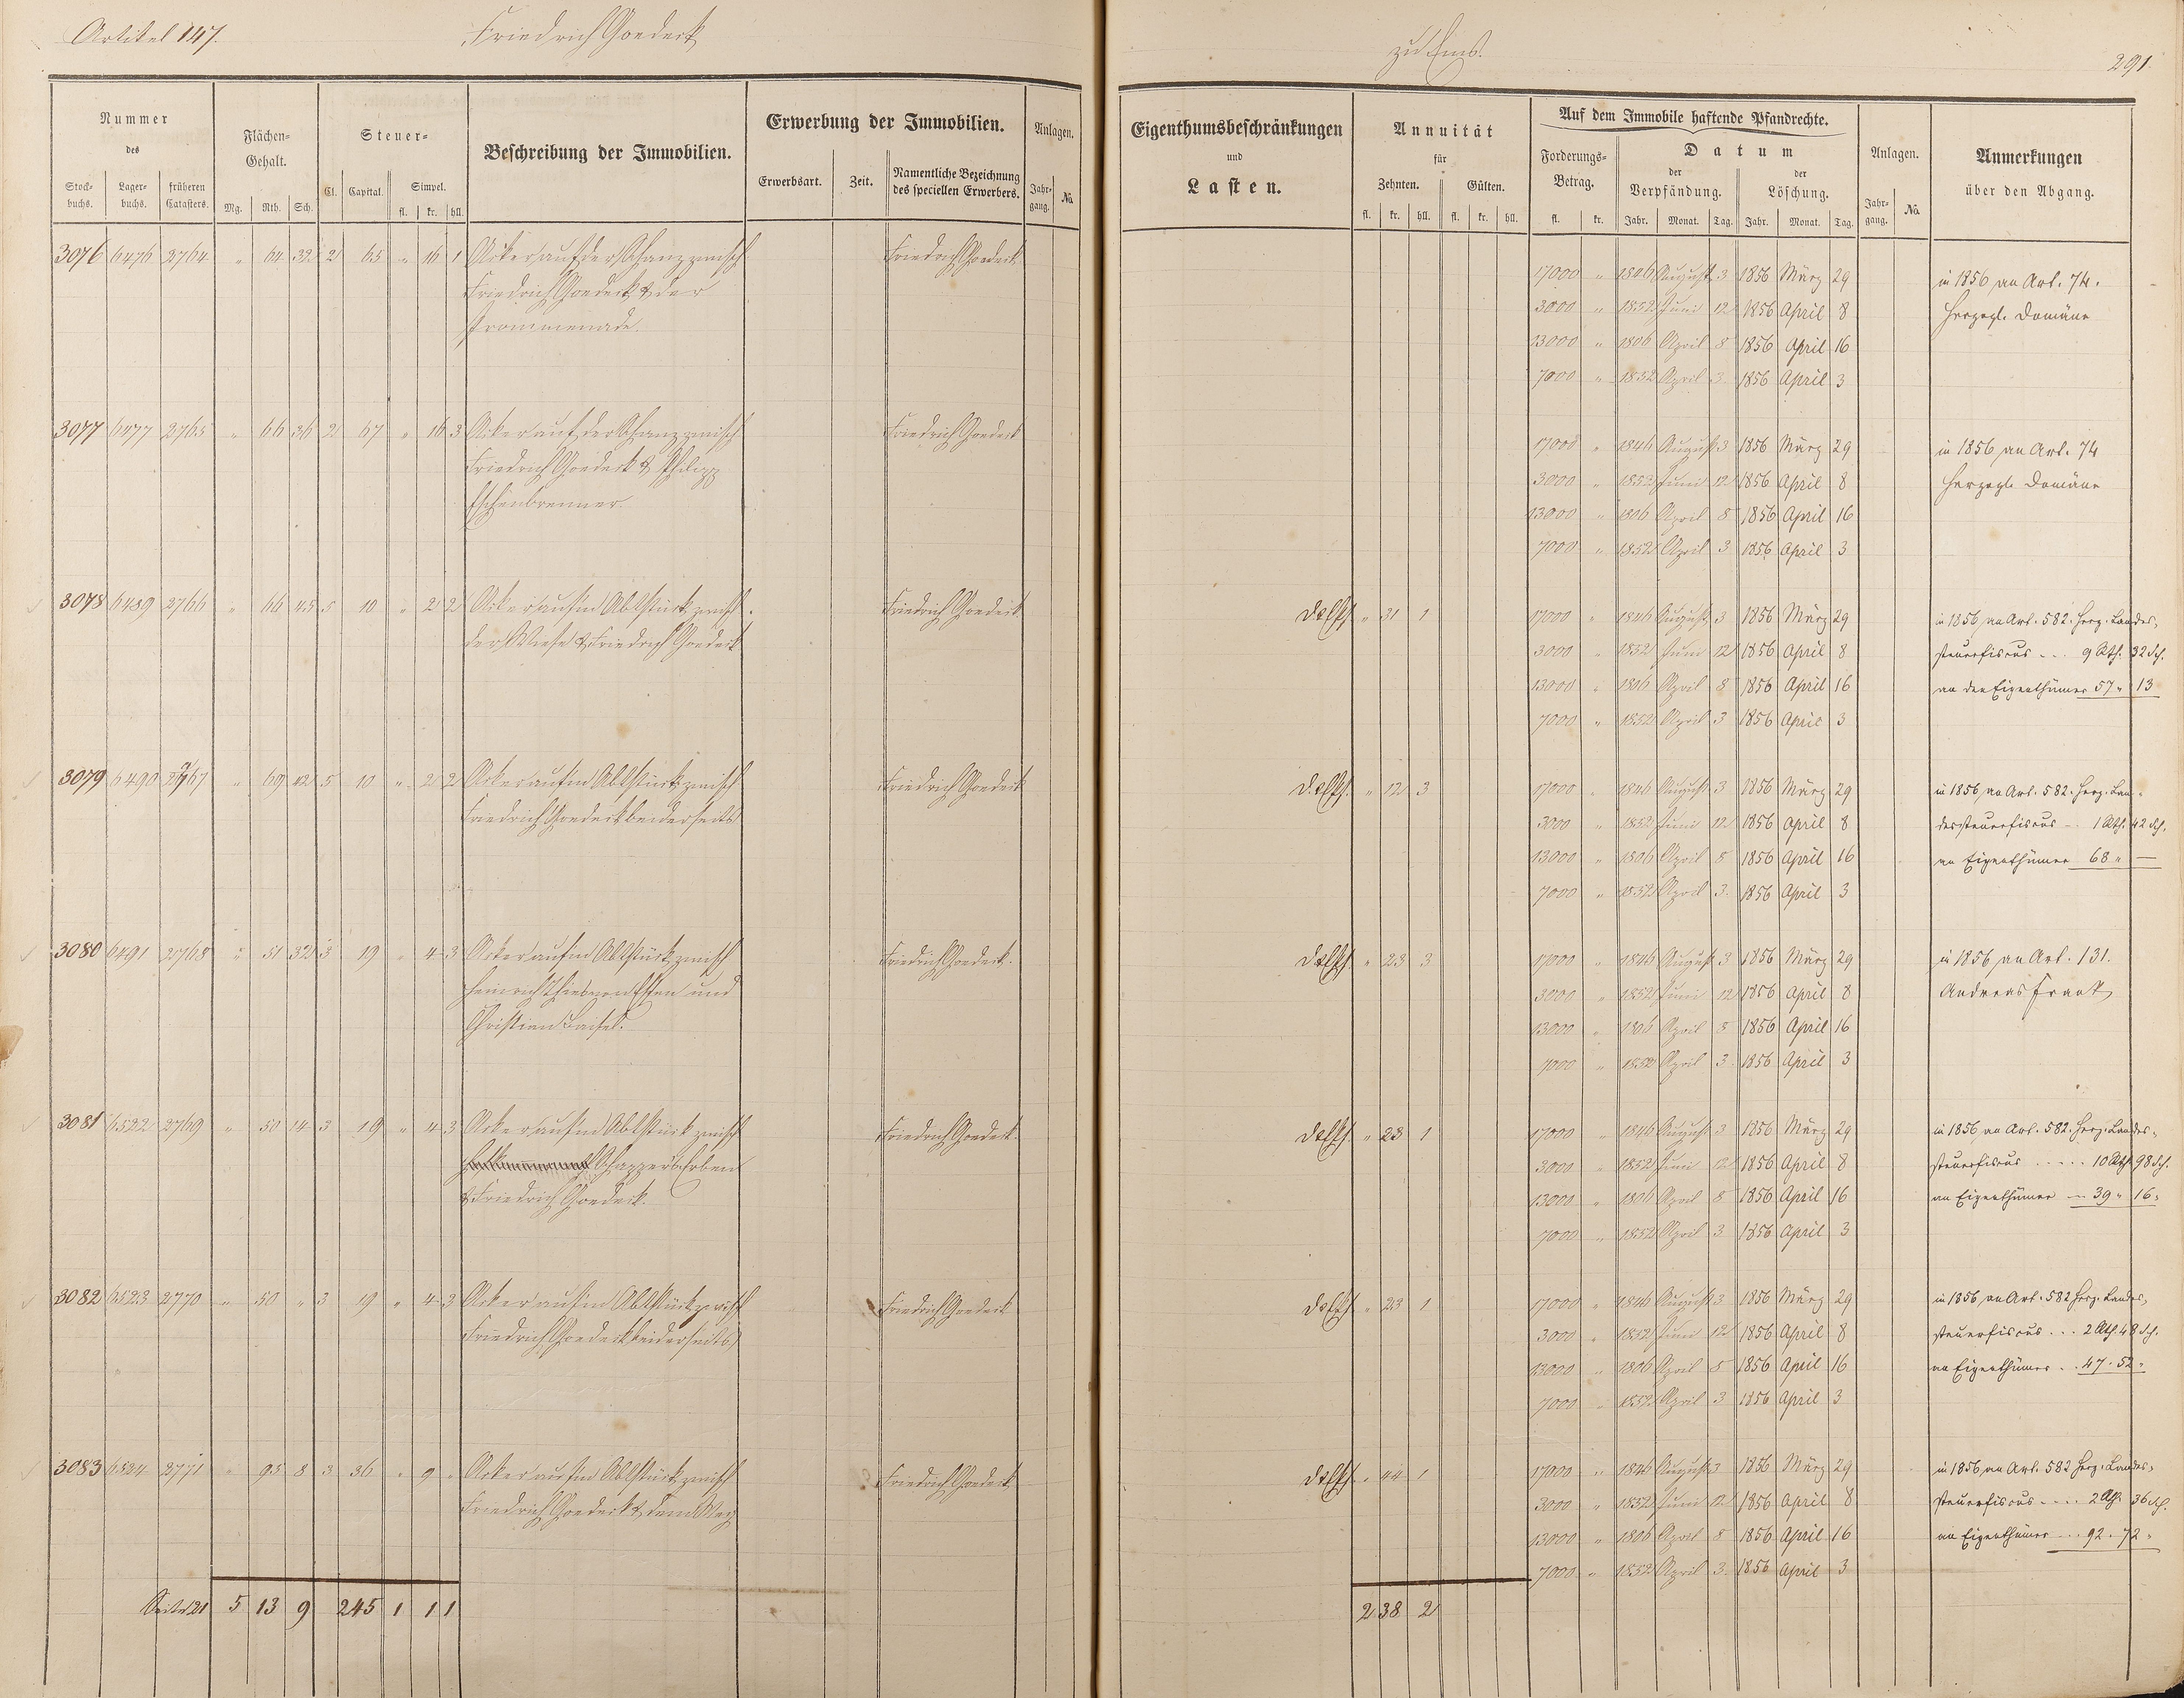 Artikel 147. Friedrich Goedeck zu Ems. 291
Nummer des Flächen-Gehalt. Steuer- Beschreibung der Immobilien. Erwerbung der Immobilien. Anlagen. Eigenthumsbeschränkungen und Lasten. Annuität für Auf dem Immobile haftende Pfandrechte. Anlagen. Anmerkungen über den Abgang.
Erwerbsart. Zeit. Namentliche Bezeichnung des speciellen Erwerbers. Zehnten. Gülten. Forderungs-Betrag. Datum der Verpfändung. der Löschung.
Stock-buchs. Lager-buchs. früheren Catasters. Mg. Rth. Sch. Cl. Capital. Simpel. fl. kr. hll. Jahr-gang. No. fl. kr. hll. fl. kr. hll. fl. kr. Jahr. Monat. Tag. Jahr. Monat. Tag. Jahr-gang. No.
3076 6476 2764 " 64 32 2 65 " 16 1 Acker auf der Schanz zwisch Friedrich Goedeck
Friedrich Goedeck & der
Prommenade.
17000 " 1846 August 3 1856 März 29 in 1856 an Art. 74.
3000 " 1852 Juni 12 1856 April 8 Herzogl. Domäne
13000 " 1806 April 8 1856 April 16
7000 " 1852 April 3 1856 April 3
3077 6477 2765 " 66 36 2 67 " 16 3 Acker auf der Schanz zwisch Friedrich Goedeck
Friedrich Goedeck & Philipp
Eschenbrenner
17000 " 1846 August 3 1856 März 29 in 1856 an Art. 74
3000 " 1852 Juni 12 1856 April 8 Herzogl. Domäne
13000 " 1806 April 8 1856 April 16
7000 " 1852 April 3 1856 April 3
3078 6489 2766 " 66 45 5 10 " 2 2 Acker auf'm Abtstück zwisch Friedrich Goedeck
der Wiese & Friedrich Goedeck
" 31 1 17000 " 1846 August 3 1856 März 29 in 1856 an Art. 582. Herz. Landes-
3000 " 1852 Juni 12 1856 April 8 steuerfiscus ... 9 Rth. 32 Sch.
13000 " 1806 April 8 1856 April 16 an den Eigenthümer 57 " 13
7000 " 1852 April 3 1856 April 3
3079 6490 2767 " 69 42 5 10 " 2 2 Acker auf'm Abtstück zwisch Friedrich Goedeck
Friedrich Goedeck beiderseits
" 12 3 17000 " 1846 August 3 1856 März 29 in 1856 an Art. 582. Herz. Lan-
3000 " 1852 Juni 12 1856 April 8 dessteuerfiscus .. 1 Rth. 42 Sch.
13000 " 1806 April 8 1856 April 16 an Eigenthümer 68 " —
7000 " 1852 April 3 1856 April 3
3080 6491 2768 " 51 32 3 19 " 4 3 Acker auf'm Abtstück zwisch Friedrich Goedeck.
Heinrich Thies von Essen und
Christian Baisel.
" 23 3 17000 " 1846 August 3 1856 März 29 in 1856 an Art. 131.
3000 " 1852 Juni 12 1856 April 8 Andreas Frank
13000 " 1806 April 8 1856 April 16
7000 " 1852 April 3 1856 April 3
3081 6522 2769 " 50 14 3 19 " 4 3 Acker auf'm Abtstück zwisch Friedrich Goedeck.
Schapper's Erben
& Friedrich Goedeck.
" 23 1 17000 " 1846 August 3 1856 März 29 in 1856 an Art. 582. Herz. Landes-
3000 " 1852 Juni 12 1856 April 8 steuerfiscus ..... 10 Rth. 98 Sch.
13000 " 1806 April 8 1856 April 16 an Eigenthümer — 39 " 16 "
7000 " 1852 April 3 1856 April 3
3082 6523 2770 " 50 " 3 19 " 4 3 Acker auf'm Abtstück zwisch Friedrich Goedeck
Friedrich Goedeck beiderseits
" 23 1 17000 " 1846 August 3 1856 März 29 in 1856 an Art. 582 Herz. Landes-
3000 " 1852 Juni 12 1856 April 8 steuerfiscus ... 2 Rth. 48 Sch.
13000 " 1806 April 8 1856 April 16 an Eigenthümer .. 47 . 52 "
7000 " 1852 April 3 1856 April 3
3083 6524 2771 " 95 8 3 36 " 9 " Acker auf'm Abtstück zwisch Friedrich Goedeck
Friedrich Goedeck & dem Weg
" 44 1 17000 " 1846 August 3 1856 März 29 in 1856 an Art. 582 Herz. Landes-
3000 " 1852 Juni 12 1856 April 8 steuerfiscus .... 2 Rth. 36 Sch.
13000 " 1806 April 8 1856 April 16 an Eigenthümer ... 92 . 72 "
7000 " 1852 April 3 1856 April 3
5 13 9 245 1 1 1 2 38 2